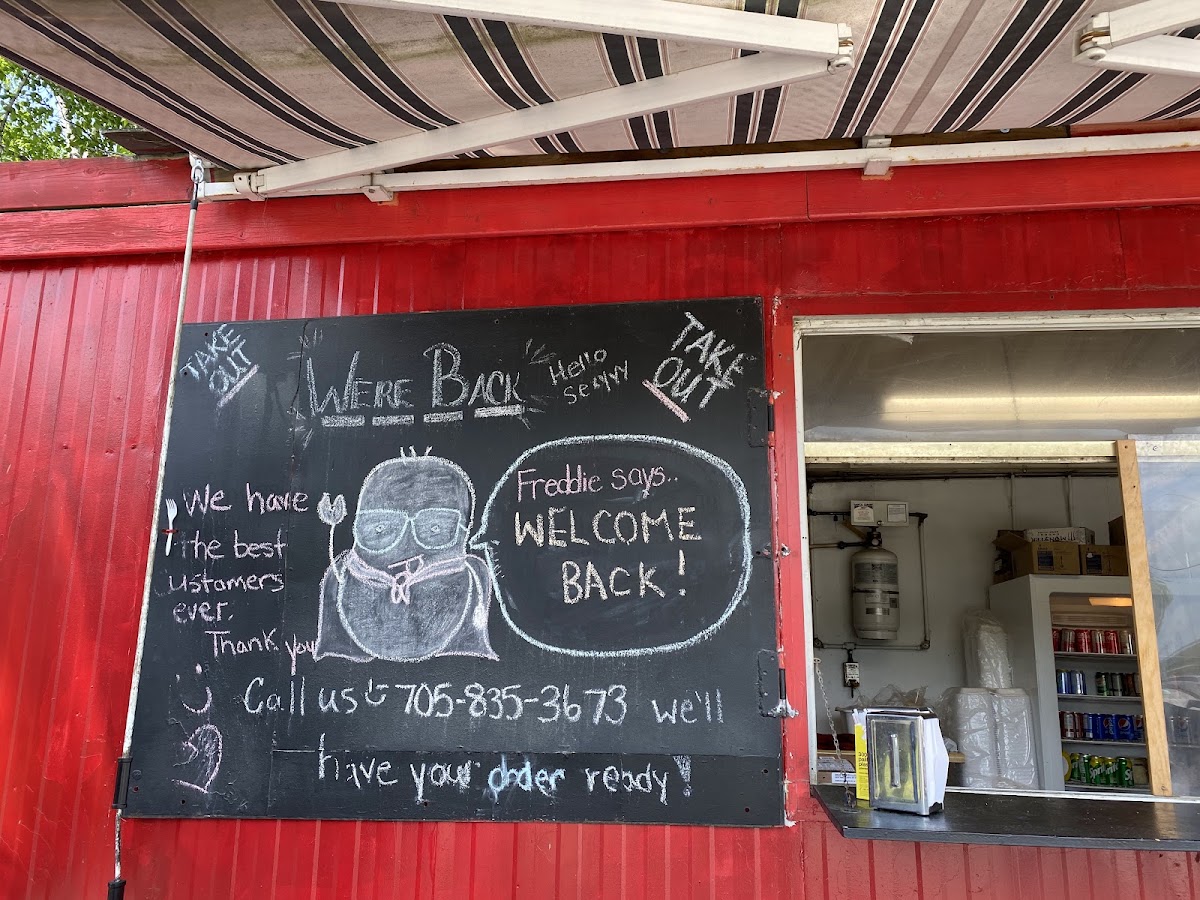 TAKE
OUT
WERE BACK
Hello
TAKE
OUT
We have
the best
ustomers
ever.
Thank you
Freddie says..
WELCOME
BACK!
Call us 705-835-3673 we'll
have your order ready!